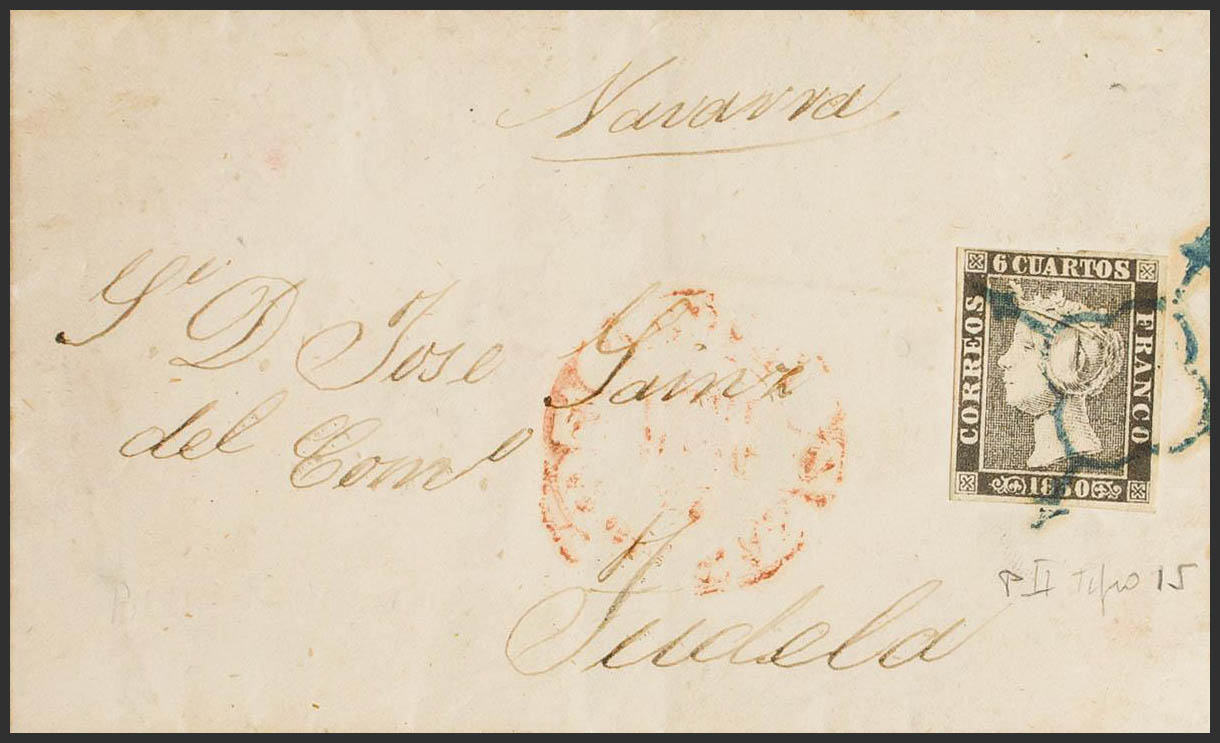 Navarra
Sr. D. Jose Sainz
del Como.
Tudela
6 CUARTOS
CORREOS
FRANCO
1850
P II Tipo 15